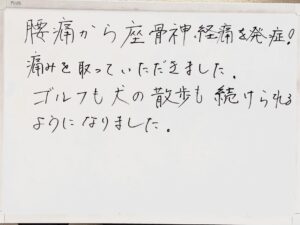 腰痛から座骨神経痛を発症!
痛みを取っていただきました.
ゴルフも犬の散歩も続けられる
ようになりました.